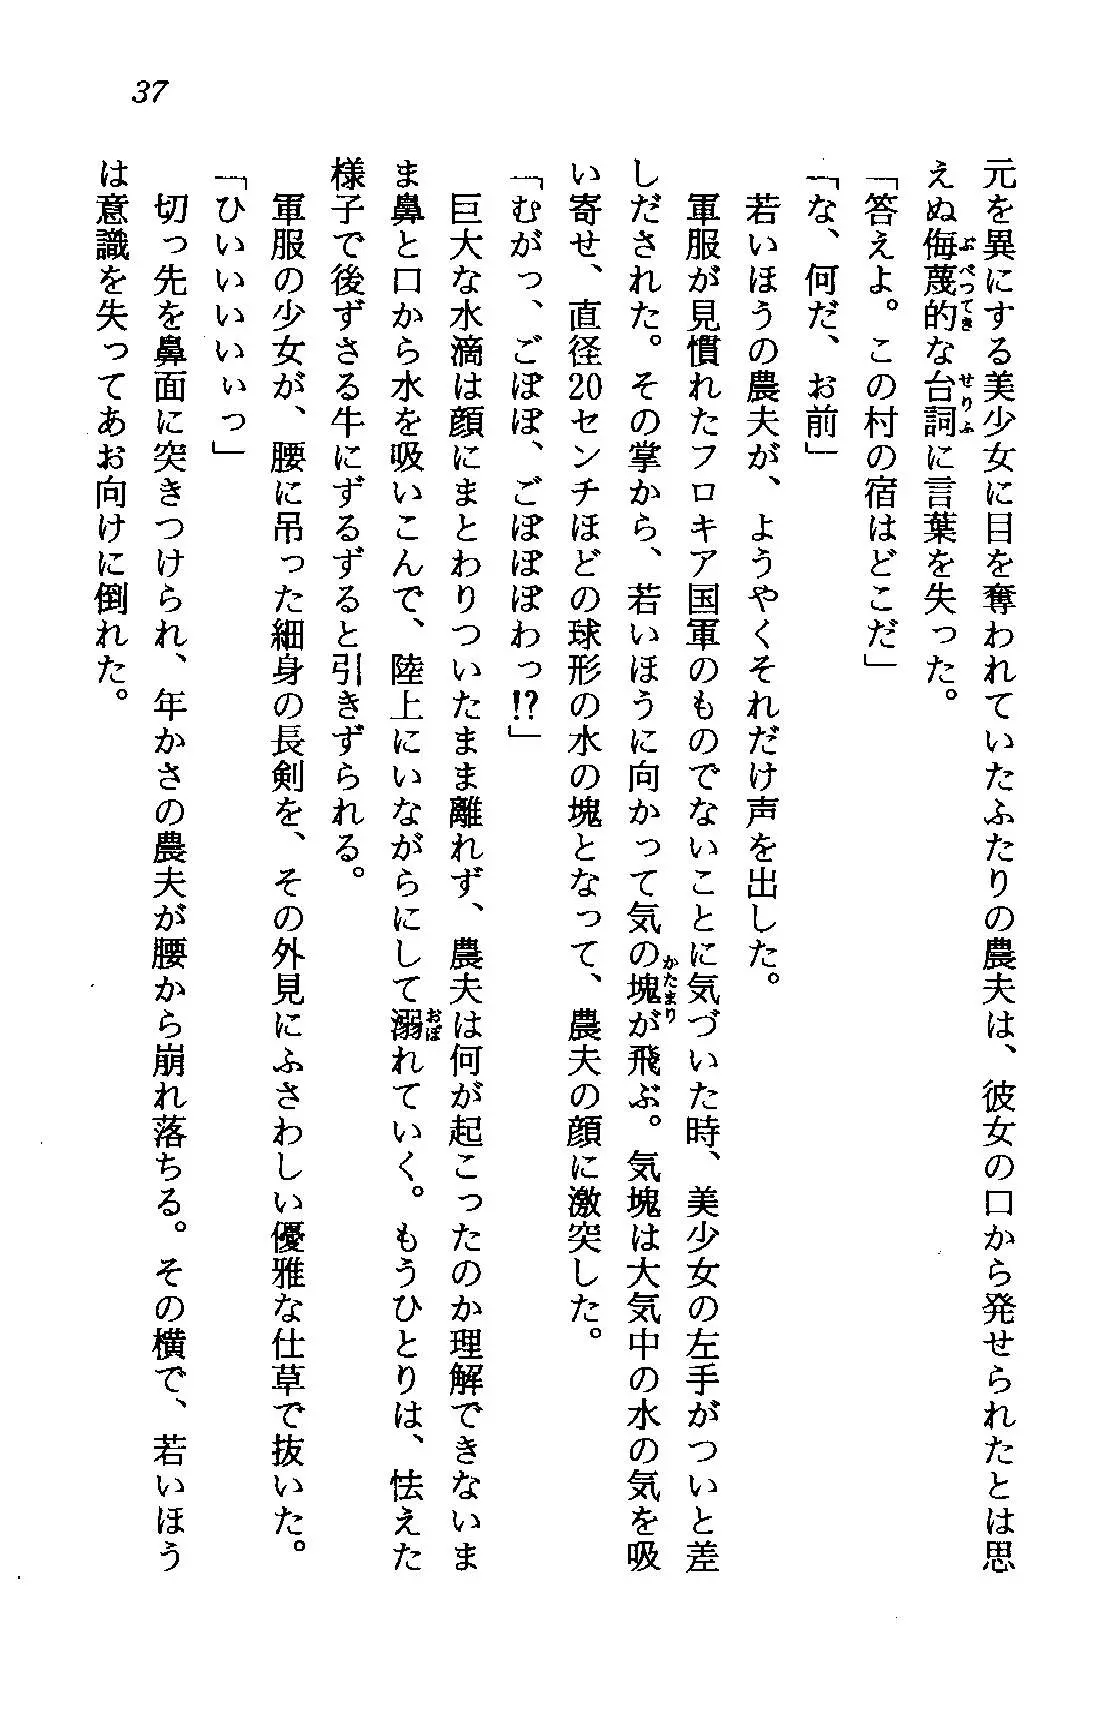 37
元を異にする美少女に目を奪われていたふたりの農夫は、彼女の口から発せられたとは思
えぬ侮蔑的な台詞に言葉を失った。
「答えよ。この村の宿はどこだ」
「な、何だ、お前」
若いほうの農夫が、ようやくそれだけ声を出した。
軍服が見慣れたフロキア国軍のものでないことに気づいた時、美少女の左手がついと差
しだされた。その掌から、若いほうに向かって気の塊が飛ぶ。気塊は大気中の水の気を吸
い寄せ、直径20センチほどの球形の水の塊となって、農夫の顔に激突した。
「むがっ、ごぽぽ、ごぽぽぽわっ!?」
巨大な水滴は顔にまとわりついたまま離れず、農夫は何が起こったのか理解できないま
ま鼻と口から水を吸いこんで、陸上にいながらにして溺れていく。もうひとりは、怯えた
様子で後ずさる牛にずるずると引きずられる。
軍服の少女が、腰に吊った細身の長剣を、その外見にふさわしい優雅な仕草で抜いた。
「ひいいいいぃっ」
切っ先を鼻面に突きつけられ、年かさの農夫が腰から崩れ落ちる。その横で、若いほう
は意識を失ってあお向けに倒れた。